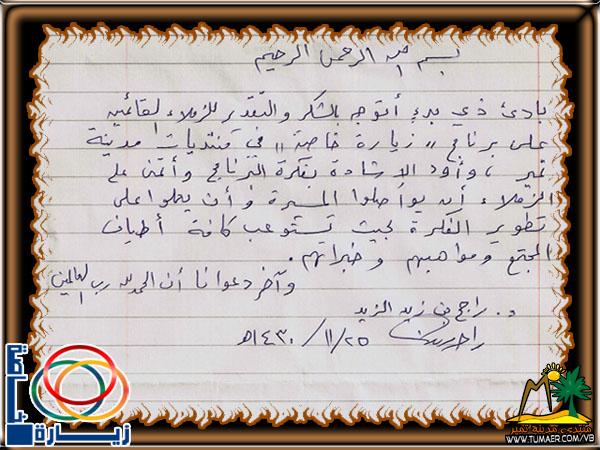 بسم الله الرحمن الرحيم
بادئ ذي بدء أتوجه بالشكر والتقدير للزملاء القائمين
على برنامج "زيارة خاصة" في منتديات مدينة
تمير، وأود الإشادة بفكرة البرنامج وأتمنى على
الزملاء أن يواصلوا المسيرة وأن يعملوا على
تطوير الفكرة بحيث تستوعب كافة أطياف
المجتمع ومواهبهم وخبراتهم.
وآخر دعوانا أن الحمد لله رب العالمين
د. راجح بن زيد الزيد
١٤٣٠/١١/٢٥هـ
زيارة
خاصة
منتدى مدينة تمير
WWW.TUMAER.COM/VB